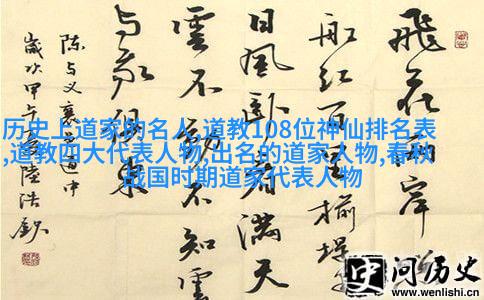 飛花兩岸
船紅百里榆堤
日風臥看滿天
雲不動不知雲
与我俱東
陈与义襄邑道中
歲次甲午陸浩
历史上道家的名人,道教108位神仙排名表
,道教四大代表人物,出名的道家人物,春秋
战国时期道家代表人物
史问历史
www.wenlishi.cn